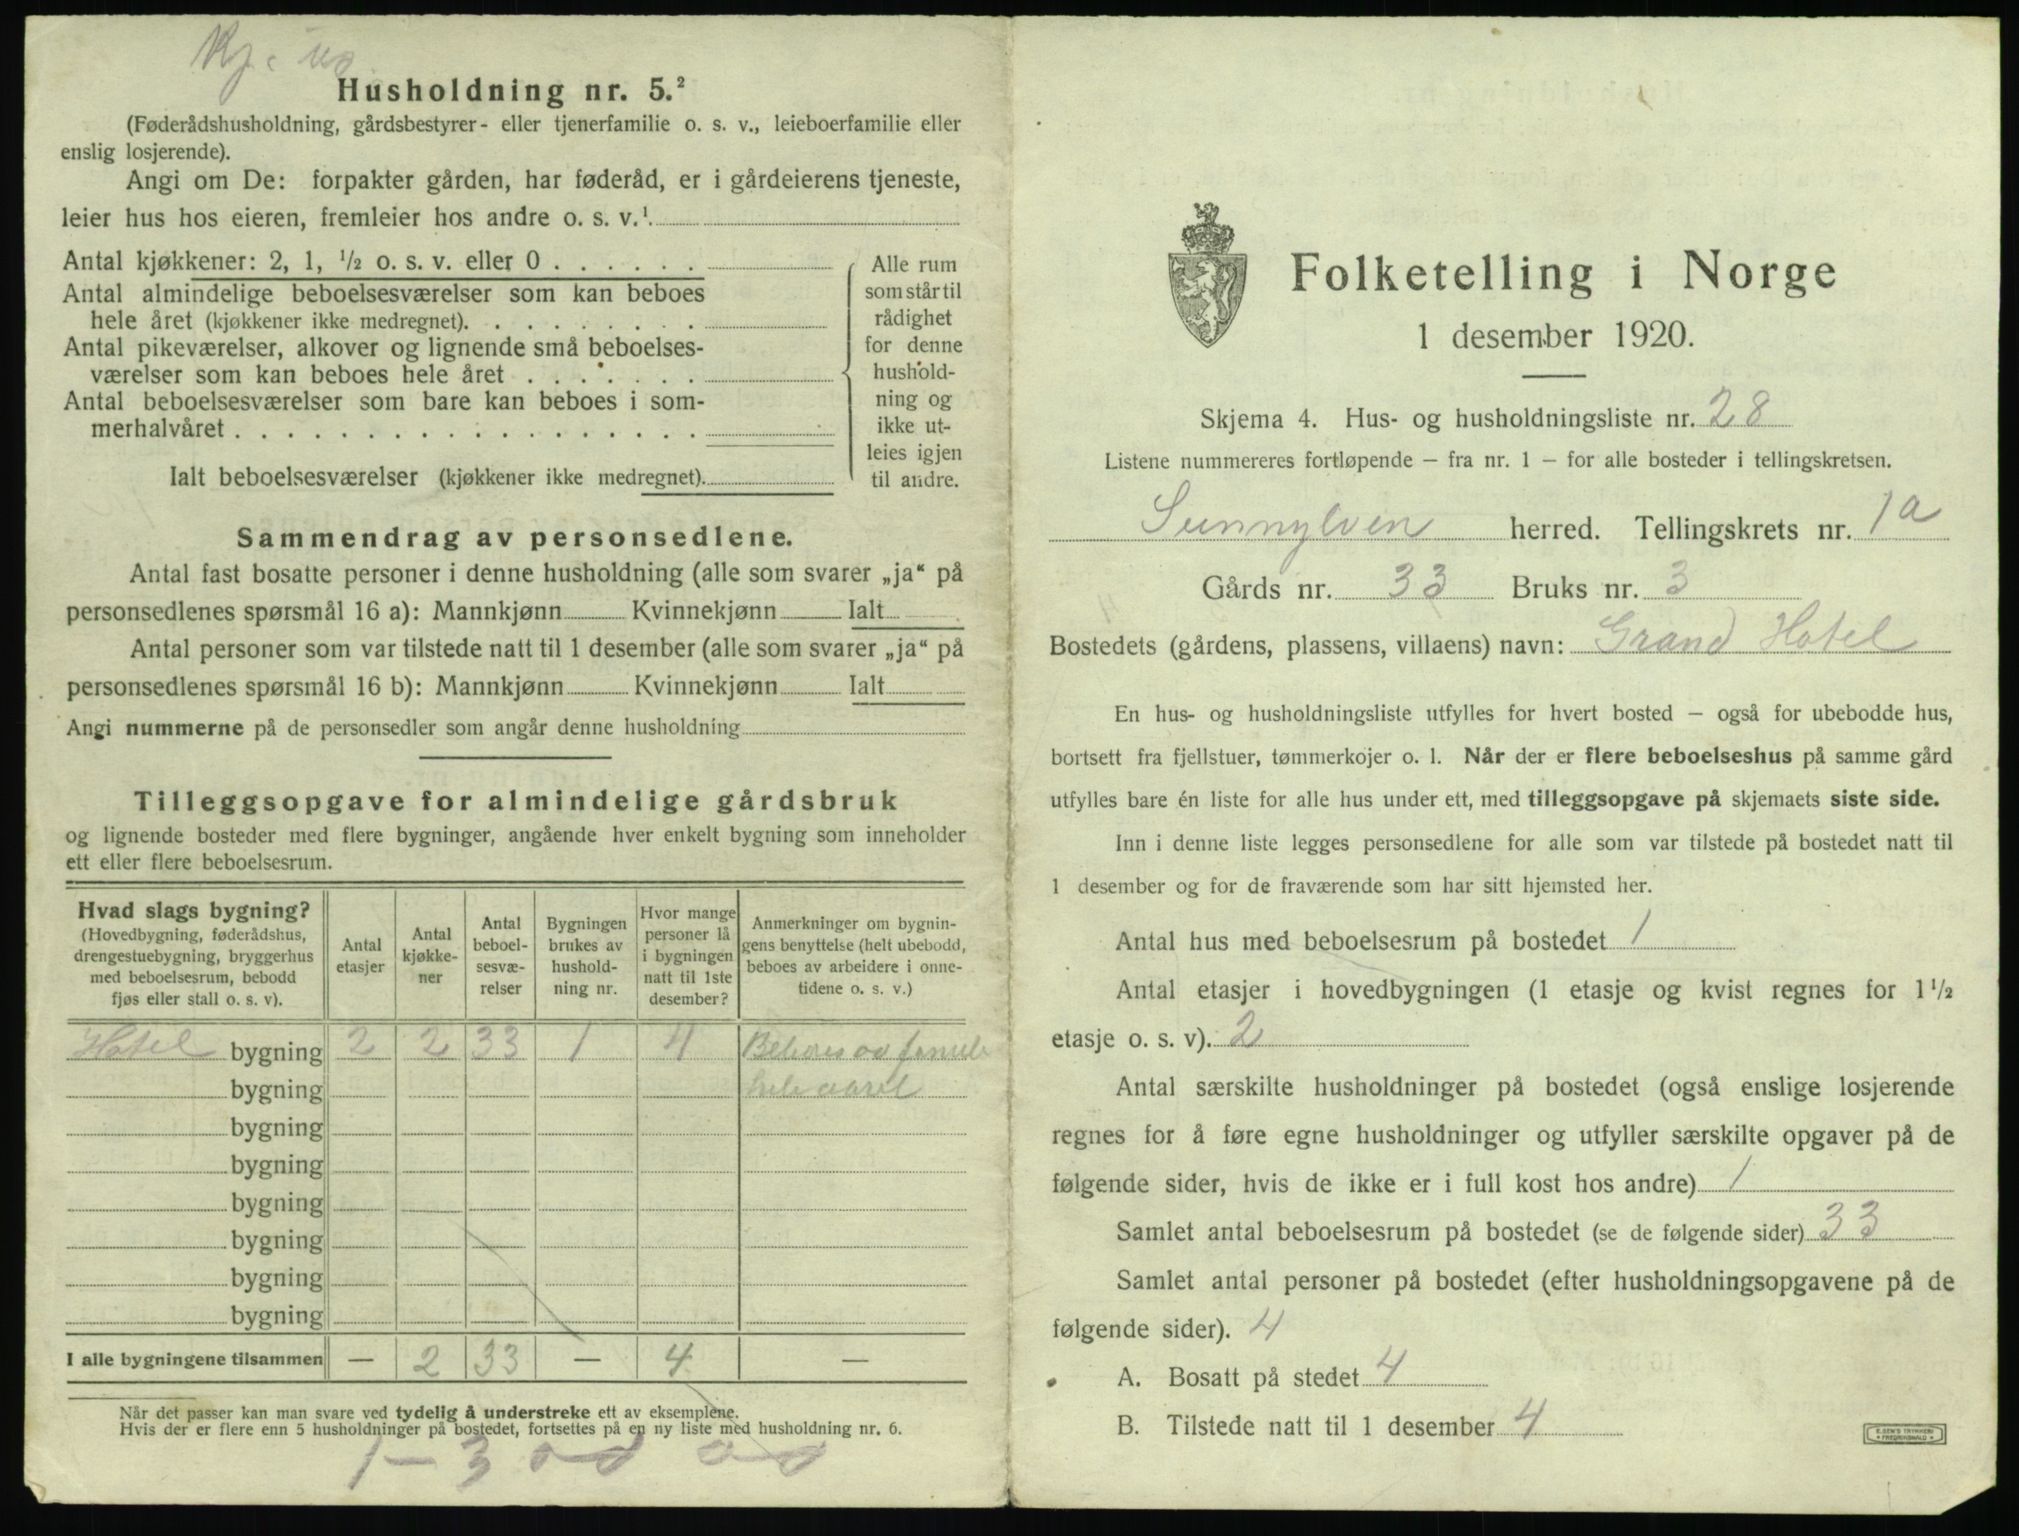 Husholdning nr. 5.²
(Føderådshusholdning, gårdsbestyrer- eller tjenerfamilie o. s. v., leieboerfamilie eller
enslig losjerende).
Angi om De: forpakter gården, har føderåd, er i gårdeierens tjeneste,
leier hus hos eieren, fremleier hos andre o. s. v.¹
Antal kjøkkener: 2, 1, ½ o. s. v. eller 0 . . . . . .
Antal almindelige beboelsesværelser som kan beboes
hele året (kjøkkener ikke medregnet). . . . . . . . .
Antal pikeværelser, alkover og lignende små beboelses-
værelser som kan beboes hele året . . . . . . .
Antal beboelsesværelser som bare kan beboes i som-
merhalvåret . . . . . . . . . . . . . . . . .
Ialt beboelsesværelser (kjøkkener ikke medregnet).
Alle rum
som står til
rådighet
for denne
hushold-
ning og
ikke ut-
leies igjen
til andre.
Sammendrag av personsedlene.
Antal fast bosatte personer i denne husholdning (alle som svarer „ja“ på
personsedlenes spørsmål 16 a): Mannkjønn Kvinnekjønn Ialt
Antal personer som var tilstede natt til 1 desember (alle som svarer „ja“ på
personsedlenes spørsmål 16 b): Mannkjønn Kvinnekjønn Ialt
Angi nummerne på de personsedler som angår denne husholdning
Tilleggsopgave for almindelige gårdsbruk
og lignende bosteder med flere bygninger, angående hver enkelt bygning som inneholder
ett eller flere beboelsesrum.
Hvad slags bygning?
(Hovedbygning, føderådshus,
drengestuebygning, bryggerhus
med beboelsesrum, bebodd
fjøs eller stall o. s. v).
Antal
etasjer
Antal
kjøkke-
ner
Antal
beboel-
sesvæ-
relser
Bygningen
brukes av
hushold-
ning nr.
Hvor mange
personer lå
i bygningen
natt til 1ste
desember?
Anmerkninger om bygnin-
gens benyttelse (helt ubebodd,
beboes av arbeidere i onne-
tidene o. s. v.)
Hotel bygning 2 2 33 1 4 Beboes av famile
bygning hele aaret
bygning
bygning
bygning
bygning
bygning
bygning
I alle bygningene tilsammen — 2 33 — 4 —
Når det passer kan man svare ved tydelig å understreke ett av eksemplene.
Hvis der er flere enn 5 husholdninger på bostedet, fortsettes på en ny liste med husholdning nr. 6.
1 – 3
Folketelling i Norge
1 desember 1920.
Skjema 4. Hus- og husholdningsliste nr. 28
Listene nummereres fortløpende – fra nr. 1 – for alle bosteder i tellingskretsen.
Sunnylven herred. Tellingskrets nr. 1a
Gårds nr. 33 Bruks nr. 3
Bostedets (gårdens, plassens, villaens) navn: Grand Hotel
En hus- og husholdningsliste utfylles for hvert bosted – også for ubebodde hus,
bortsett fra fjellstuer, tømmerkojer o. l. Når der er flere beboelseshus på samme gård
utfylles bare én liste for alle hus under ett, med tilleggsopgave på skjemaets siste side.
Inn i denne liste legges personsedlene for alle som var tilstede på bostedet natt til
1 desember og for de fraværende som har sitt hjemsted her.
Antal hus med beboelsesrum på bostedet 1
Antal etasjer i hovedbygningen (1 etasje og kvist regnes for 1½
etasje o. s. v). 2
Antal særskilte husholdninger på bostedet (også enslige losjerende
regnes for å føre egne husholdninger og utfyller særskilte opgaver på de
følgende sider, hvis de ikke er i full kost hos andre) 1
Samlet antal beboelsesrum på bostedet (se de følgende sider) 33
Samlet antal personer på bostedet (efter husholdningsopgavene på de
følgende sider). 4
A. Bosatt på stedet 4
B. Tilstede natt til 1 desember 4